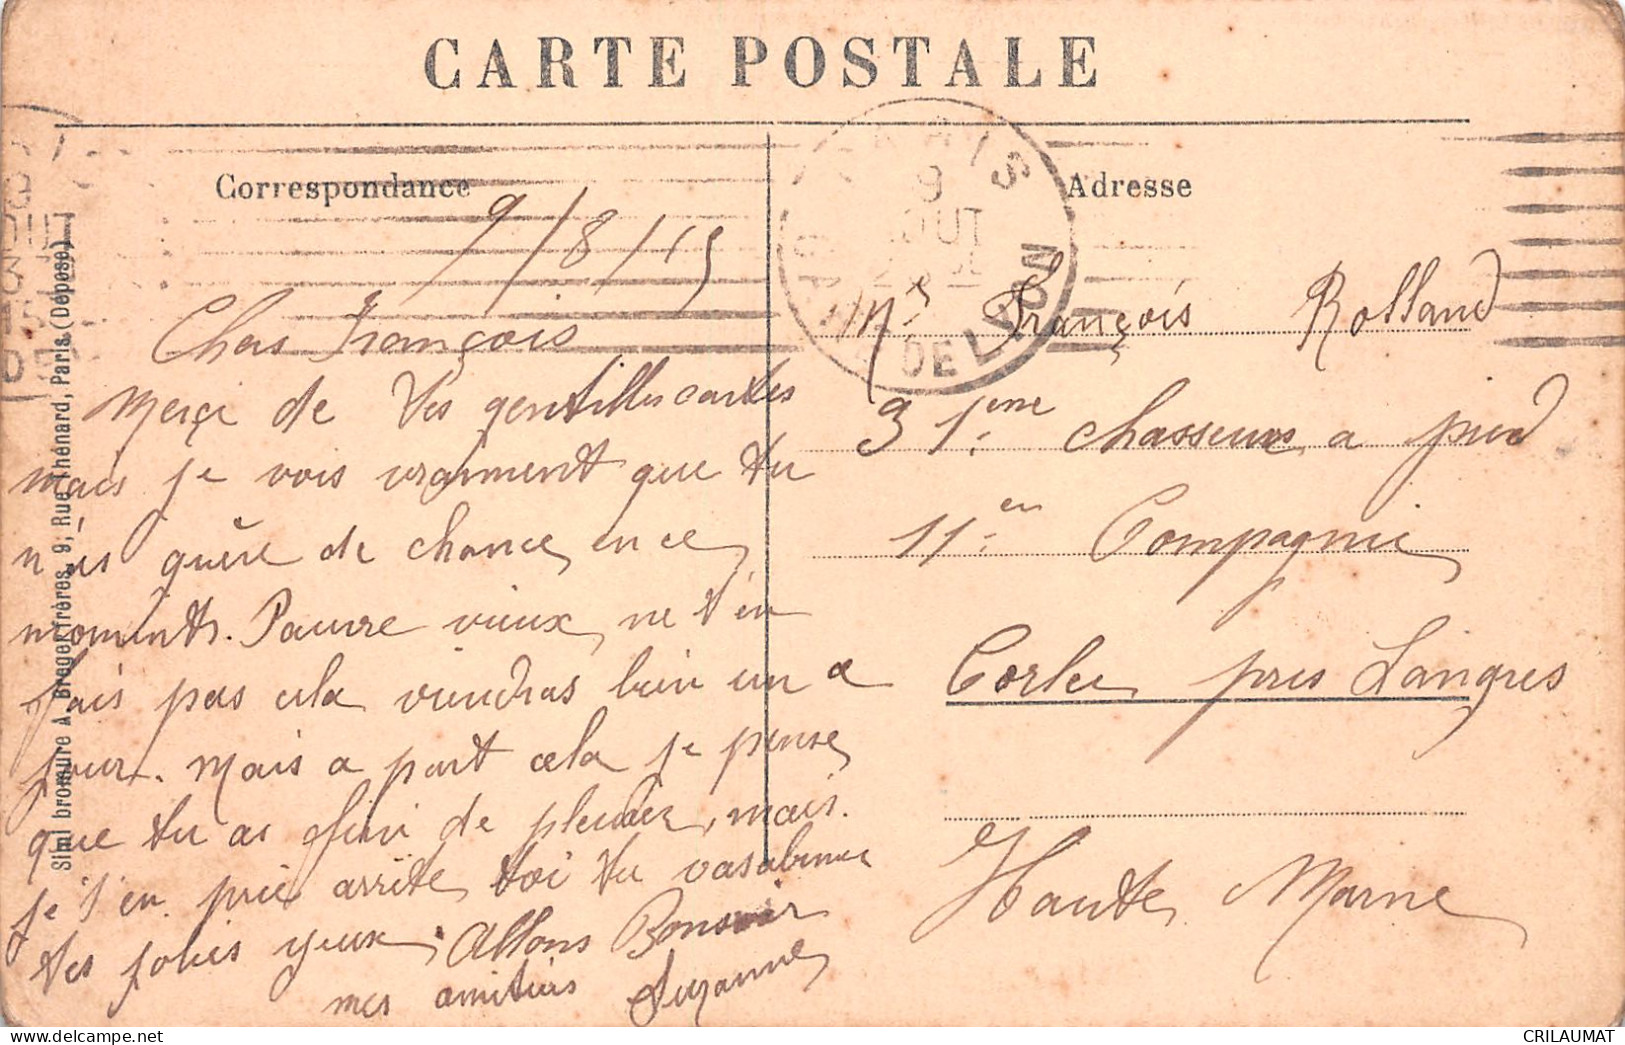 CARTE POSTALE
Correspondance
Adresse
PARIS
9
OUT
GARE DE LYON
9/8/15
Cher François
Merci de tes gentilles cartes
mais je vois vraiment que tu
n'as guère de chance en ce
moments. Pauvre vieux, ne t'en
fais pas cela viendras bien un
jour. Mais a part cela je pense
que tu as fini de pleurer, mais.
je t'en prie arrïte toi tu vas abimer
tes jolies yeux. Allons Bonsoir
mes amitiés Suzanne
Mr François Rolland
31eme chasseurs a pied
11en Compagnie
Corlee pres Langres
Haute Marne
Simi bromure A. Breger frères, 9, Rue Thénard, Paris (Déposé)
CRILAUMAT